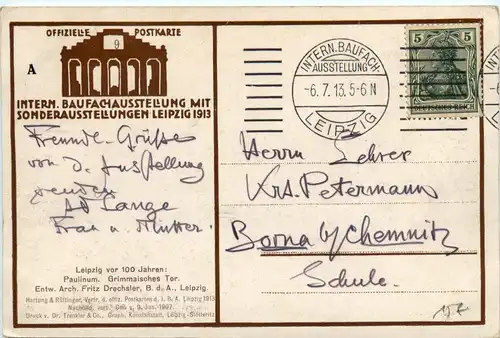 OFFIZIELLE POSTKARTE
9
A
INTERN. BAUFACHAUSSTELLUNG MIT
SONDERAUSSTELLUNGEN LEIPZIG 1913
INTERN. BAUFACH-
AUSSTELLUNG
-6.7.13.5-6N
LEIPZIG
5 5
DEUTSCHES REICH
Freundl. Grüße
von d. Ausstellung
senden
Lange
Frau u. Mutter.
Herrn Lehrer
Petermann
Borna b/Chemnitz
Schule.
Leipzig vor 100 Jahren:
Paulinum. Grimmaisches Tor.
Entw. Arch. Fritz Drechsler, B. d. A., Leipzig.
Hartung & Rötzinger, Vertr. d. offiz. Postkarten d. I. B. A. Leipzig 1913
Druck v. Dr. Trenkler & Co., Graph. Kunstanstalt, Leipzig-Stötteritz